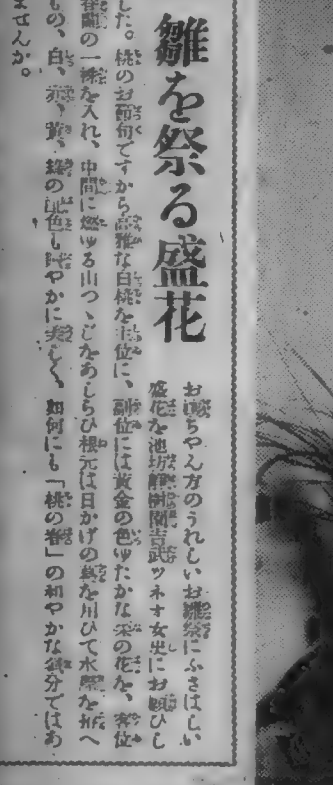 雛を祭る盛花
お嬢ちやん方のうれしいお雛祭にふさはしい
盛花を池坊 樹閣吉武ツネオ女史にお願ひし
した。桃のお節句ですから高雅な白桃を主位に、副位には黄金の色ゆたかな菜の花を、客位
春蘭の一株を入れ、中間に燃ゆる山つゝじをあしらひ根元は日かげの葛を用ひて水際を へ
もの、白、赤、黄、緑の配色も やかに美しく、如何にも「桃の春」の和やかな氣分ではあ
ませんか。